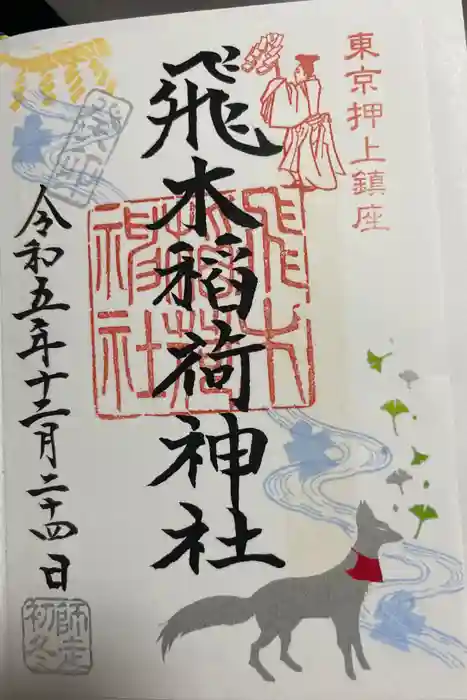 東京押上鎮座
飛木稲荷神社
飛木
稲荷
神社
癸卯
令和五年十二月二十四日
師走
初冬